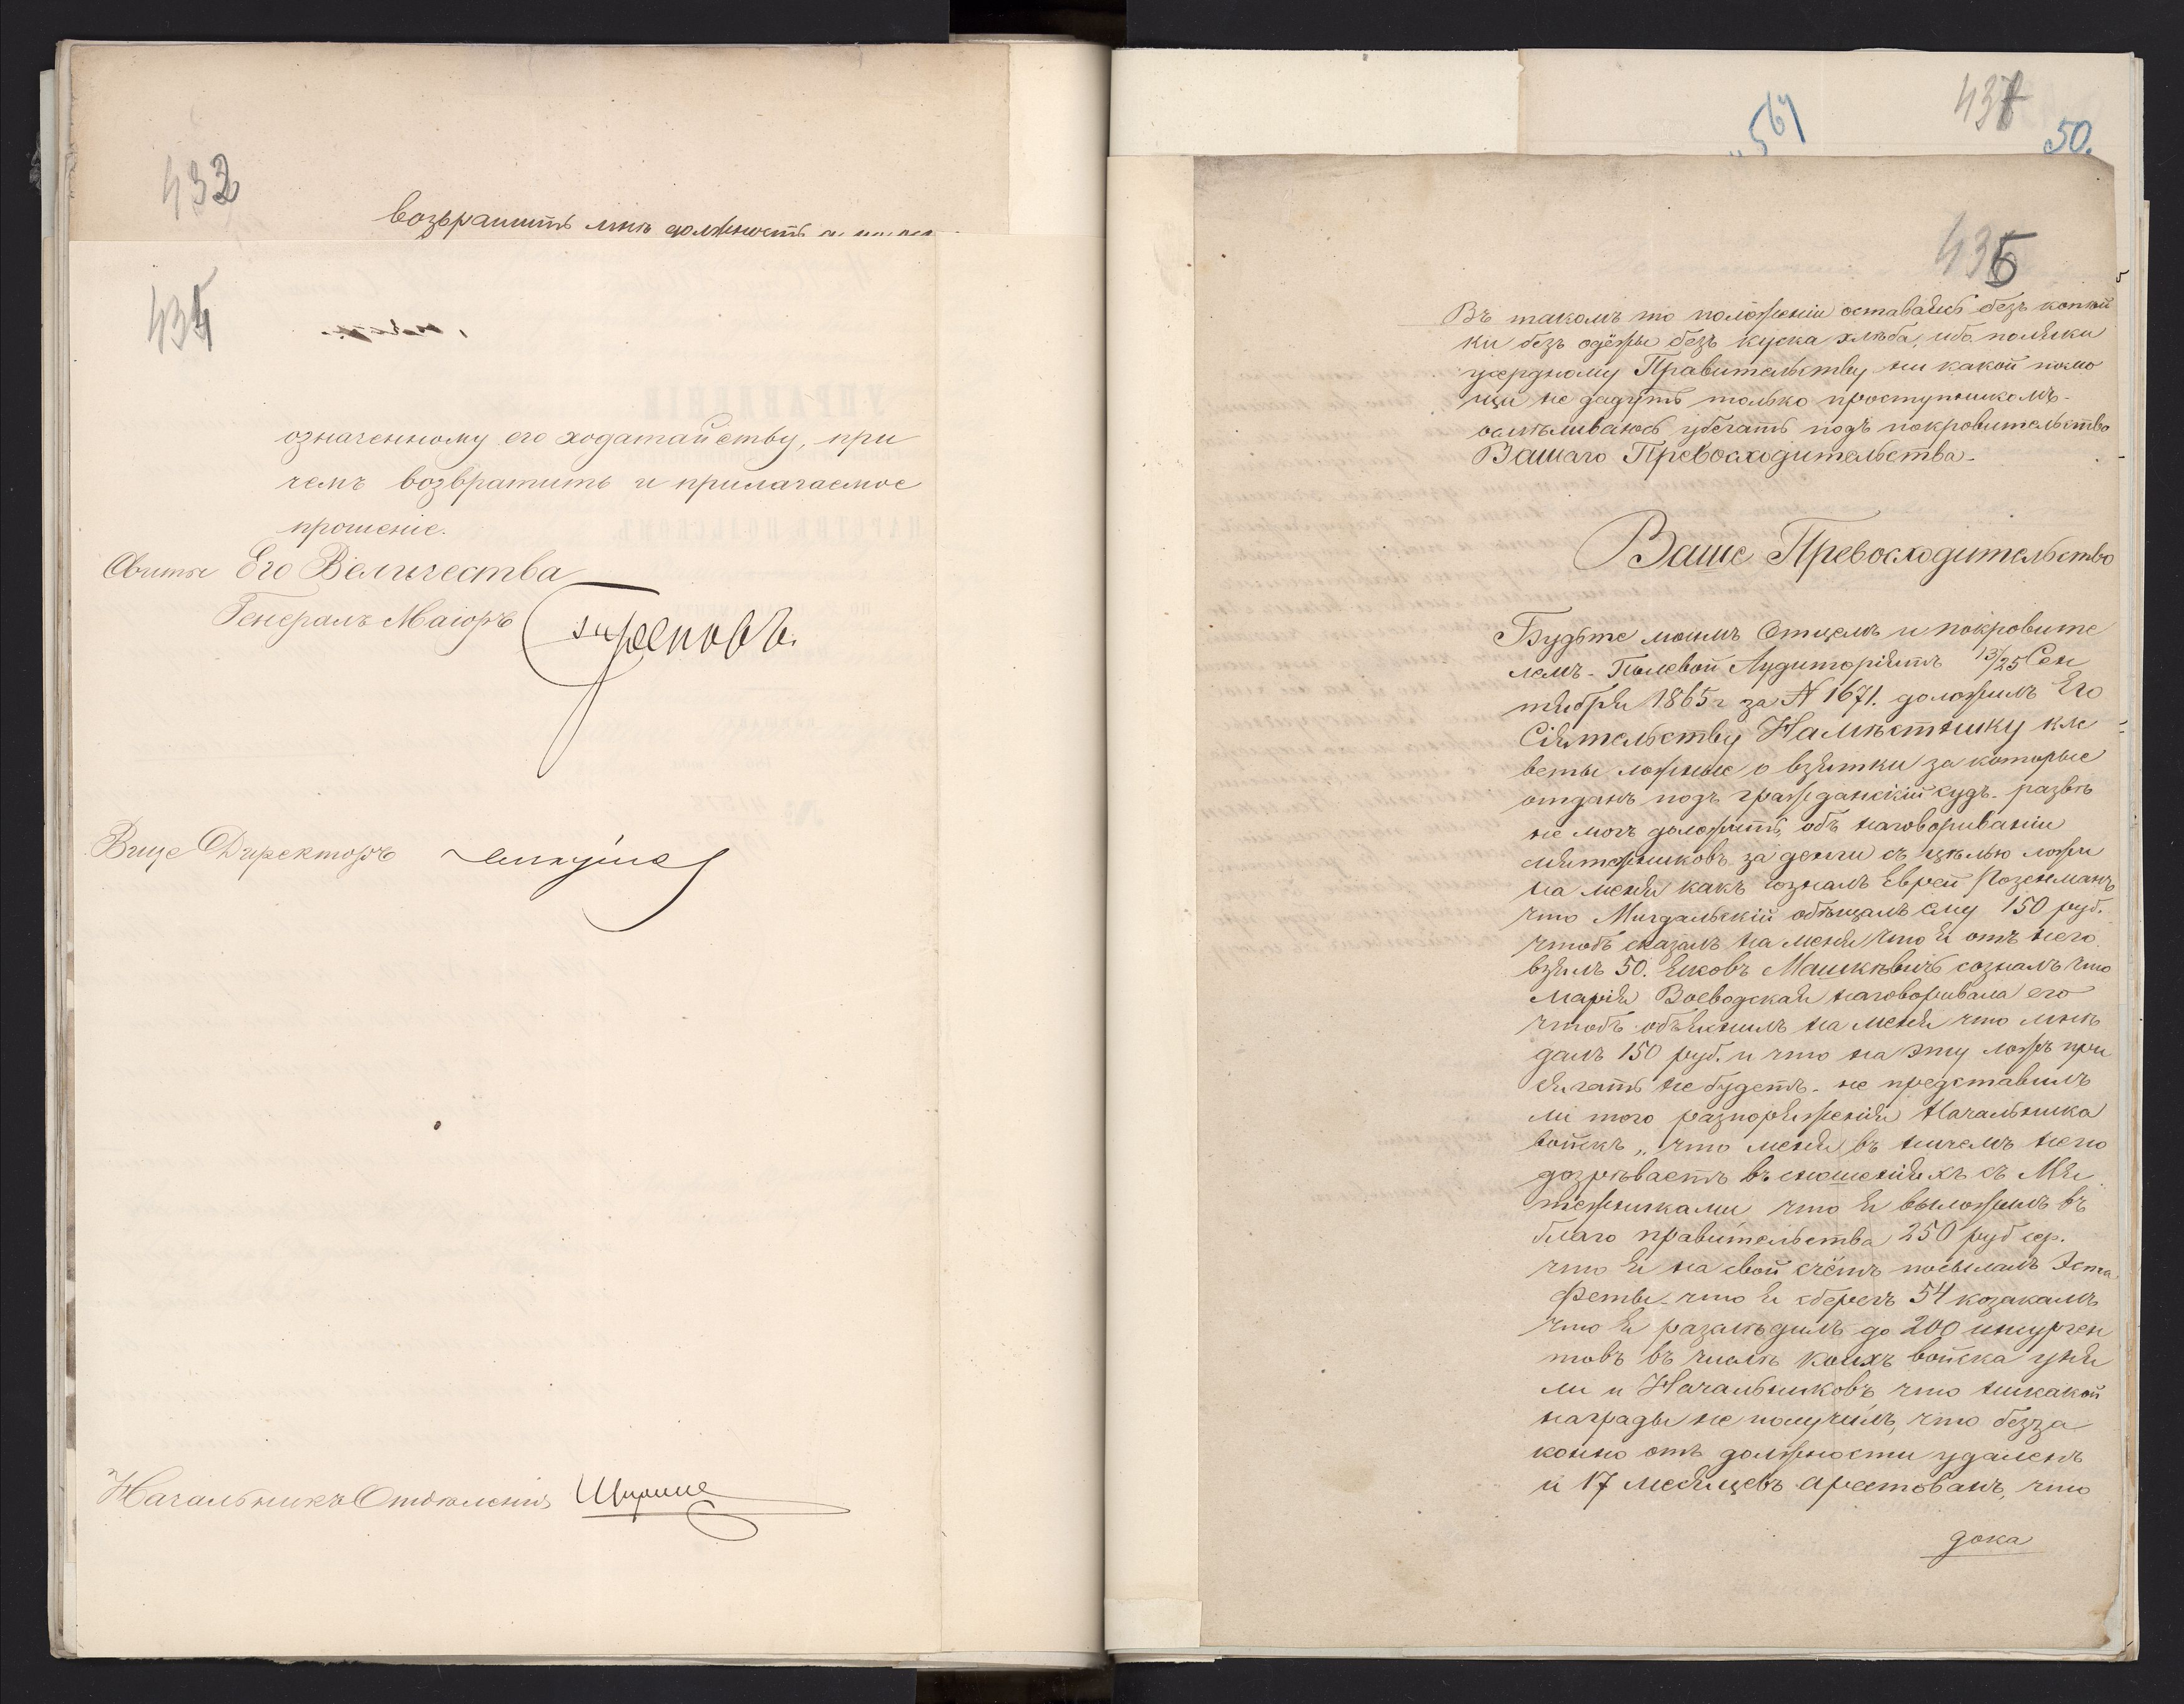 432
возвратить мнѣ должность
434
означенному его ходатайству, при
чемъ возвратить и прилагаемое
прошеніе.
Свиты Его Величества
Генералъ Маіоръ
Вице Директоръ
Начальникъ Отдѣленія
567
437
50.
435
Въ такомъ то положеніи оставаясь безъ копѣй
ки безъ одёжы безъ куска хлѣба, ибо поляки
усердному Правительству ни какой помо
щи не дадутъ только проступникомъ-
осмѣливаюсь убегать подъ покровительство
Вашаго Превосходительства-
Ваше Превосходительство
Будьте моимъ Отцемъ и покровите
лемъ- Полевой Аудиторіятъ 13/25 Сен
тября 1865 г за N 1671. доложилъ Его
Сіятельству Намѣстнику кле
веты ложные о взятки за которые
отданъ подъ гражданскій судъ- развѣ
не могъ доложить, объ наговориваніи
мятежниковъ за денги съ цѣлью ложи
на меня какъ созналъ Еврей Розенманъ
что Мигдальскій обѣщалъ ему 150 руб.
чтобъ сказалъ на меня что я отъ него
взялъ 50. Яковъ Машкѣвичъ созналъ что
Марія Воеводская наговоривала его
чтобъ объяснилъ на меня что мнѣ
далъ 150 руб. и что на эту ложъ при
сягать не будетъ- не представилъ
ли того разпоряженія Начальника
войскъ „что меня въ ничемъ непо
дозрѣваетъ въ сношеніяхъ съ Мя
тежниками что я выложилъ въ
благо правительства 250 руб сер.
что я на свой счётъ посылалъ Эста
феты- что я сберегъ 54 козакамъ
что я разслѣдилъ до 200 инсурген
товъ въ числѣ коихъ войска уня
ли и Начальниковъ что никакой
награды не получилъ, что безза
конно отъ должности удаленъ
и 17 месяцевъ арестованъ, что
дока